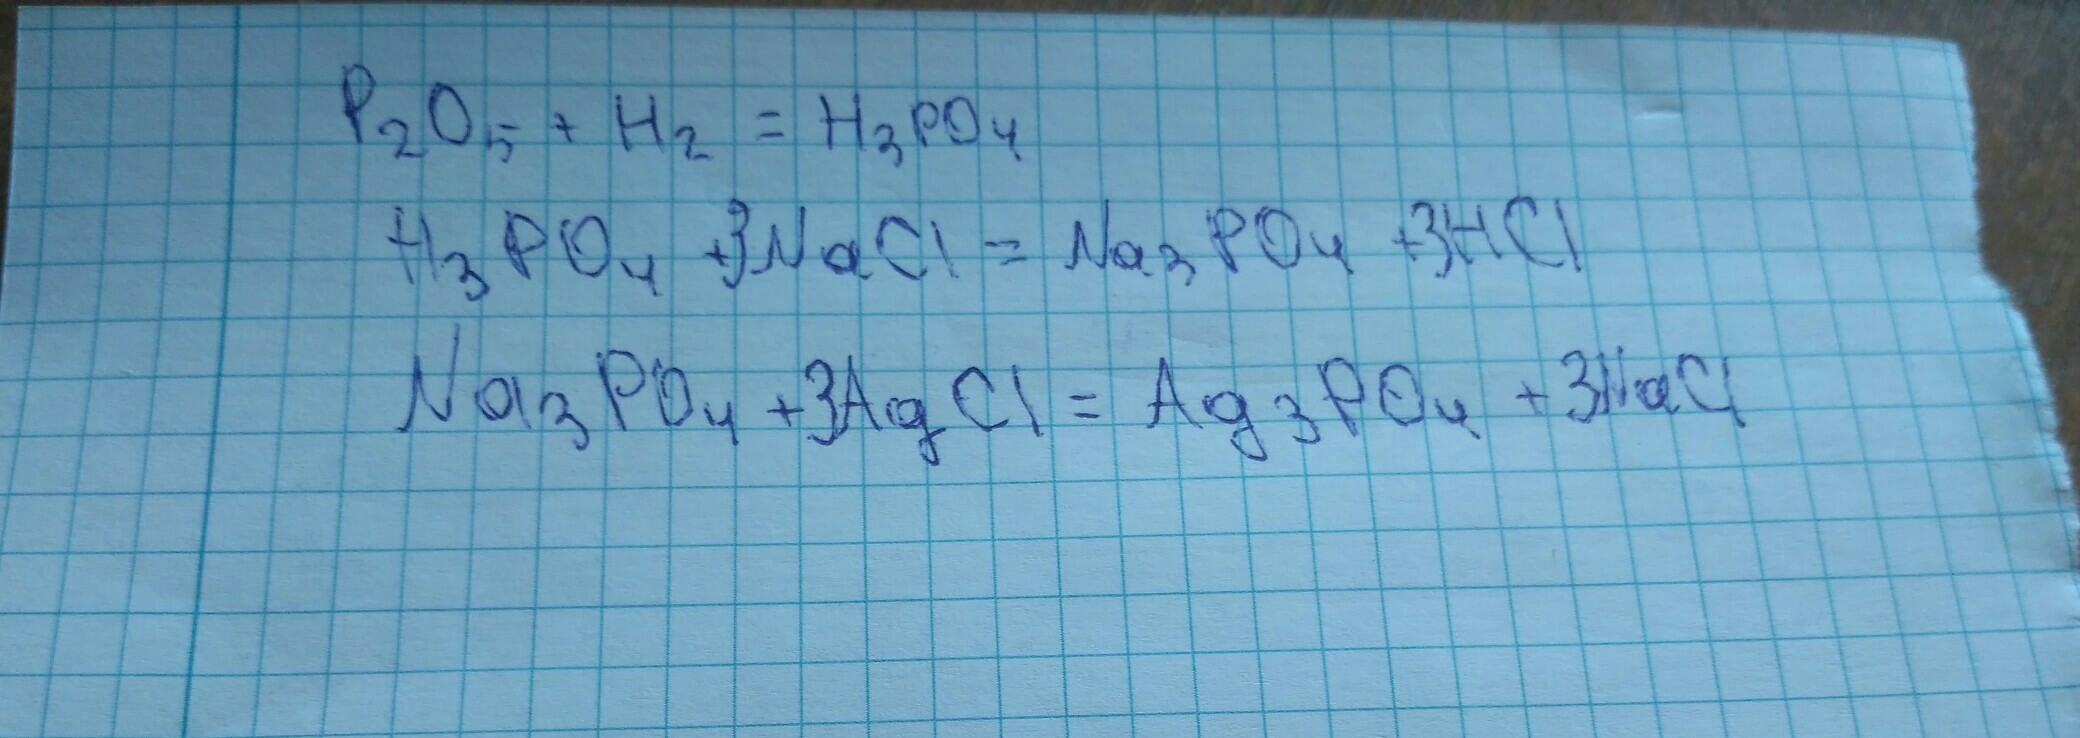 P₂O₅ + H₂ = H₃PO₄
H₃PO₄ +3NaCl = Na₃PO₄ +3HCl
Na₃PO₄ +3AgCl = Ag₃PO₄ +3NaCl